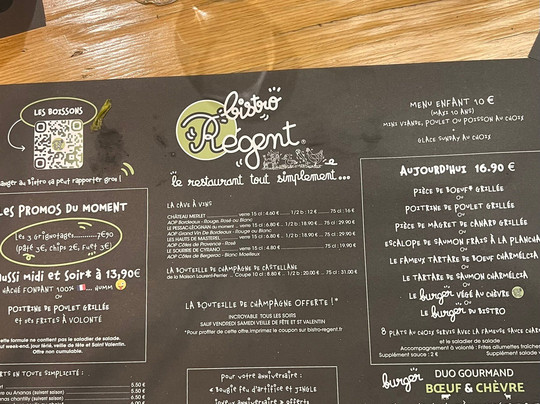 LES BOISSONS
anger au bistro ça peut rapporter gros !
Les PROMOS DU MOMENT
Les 3 Grignotages..........7€90
(pâté 3€, chips 2€, Fuet 3€)
ussi midi et Soir* à 13,90€
HACHÉ FONDANT 100% ... HUMM
Ou
POITRINE DE POULET GRILLÉE
et ses FRITES À VOLONTÉ
ette formule ne contient pas le saladier de salade.
uf week-end, jour férié, veille de fête et Saint Valentin.
Offre non cumulable.
RTS EN TOUTE SIMPLICITÉ :
5.50 €
bistro
Régent
le restaurant tout simplement...
LA CAVE À VINS
CHÂTEAU MERLET
verre 15 cl : 4.60 €
1/2 b : 12 €
75 cl : 16 €
AOP Bordeaux - Rouge, Rosé ou Blanc
LE PESSAC-LÉOGNAN au moment
verre 15 cl : 6.80 €
1/2 b : 18.90 €
75 cl : 29.90 €
AOP Grand Vin De Bordeaux - Rouge ou Blanc
LES HAUTS DE MASTEREL
AOP Côtes de Provence - Rosé
LE SOURIRE DE CYRANO
AOP Côtes de Bergerac - Blanc Moelleux
LA BOUTEILLE DE CHAMPAGNE DE CASTELLANE
de la Maison Laurent-Perrier
Coupe 10 cl : 8.80 €
1/2 b : 20.00 €
75 cl : 31.00 €
LA BOUTEILLE DE CHAMPAGNE OFFERTE !*
INCROYABLE TOUS LES SOIRS
SAUF VENDREDI SAMEDI VEILLE DE FÊTE ET ST VALENTIN
*Pour profiter de cette offre, imprimez le coupon sur bistro-regent.fr
Pour votre anniversaire :
« bougie feu d'artifice et JINGLE
joyeux anniversaire » offerts
MENU ENFANT 10 €
(MAXI 10 ANS)
MINI VIANDE, POULET OU POISSON AU CHOIX
+
GLACE SUNDAY AU CHOIX
AUJOURD'HUI 16.90 €
PIÈCE DE BOEUF* GRILLÉE
Ou
POITRINE DE POULET GRILLÉE
Ou
PIÈCE DE MAGRET DE CANARD GRILLÉE
Ou
ESCALOPE DE SAUMON FRAIS À LA PLANCHA
Ou
LE FAMEUX TARTARE DE BOEUF CHARMÉLIA
Ou
LE TARTARE DE SAUMON CHARMÉLIA
Ou
LE burger VÉGÉ AU CHÈVRE
Ou
LE burger DU BISTRO
8 PLATS AU CHOIX SERVIS AVEC LA FAMEUSE SAUCE
et le saladier de salade
Accompagnement à volonté : Frites allumettes
Supplément sauce : 2 €
Supplément salade
burger DUO GOURMAND
BŒUF & CHÈVRE